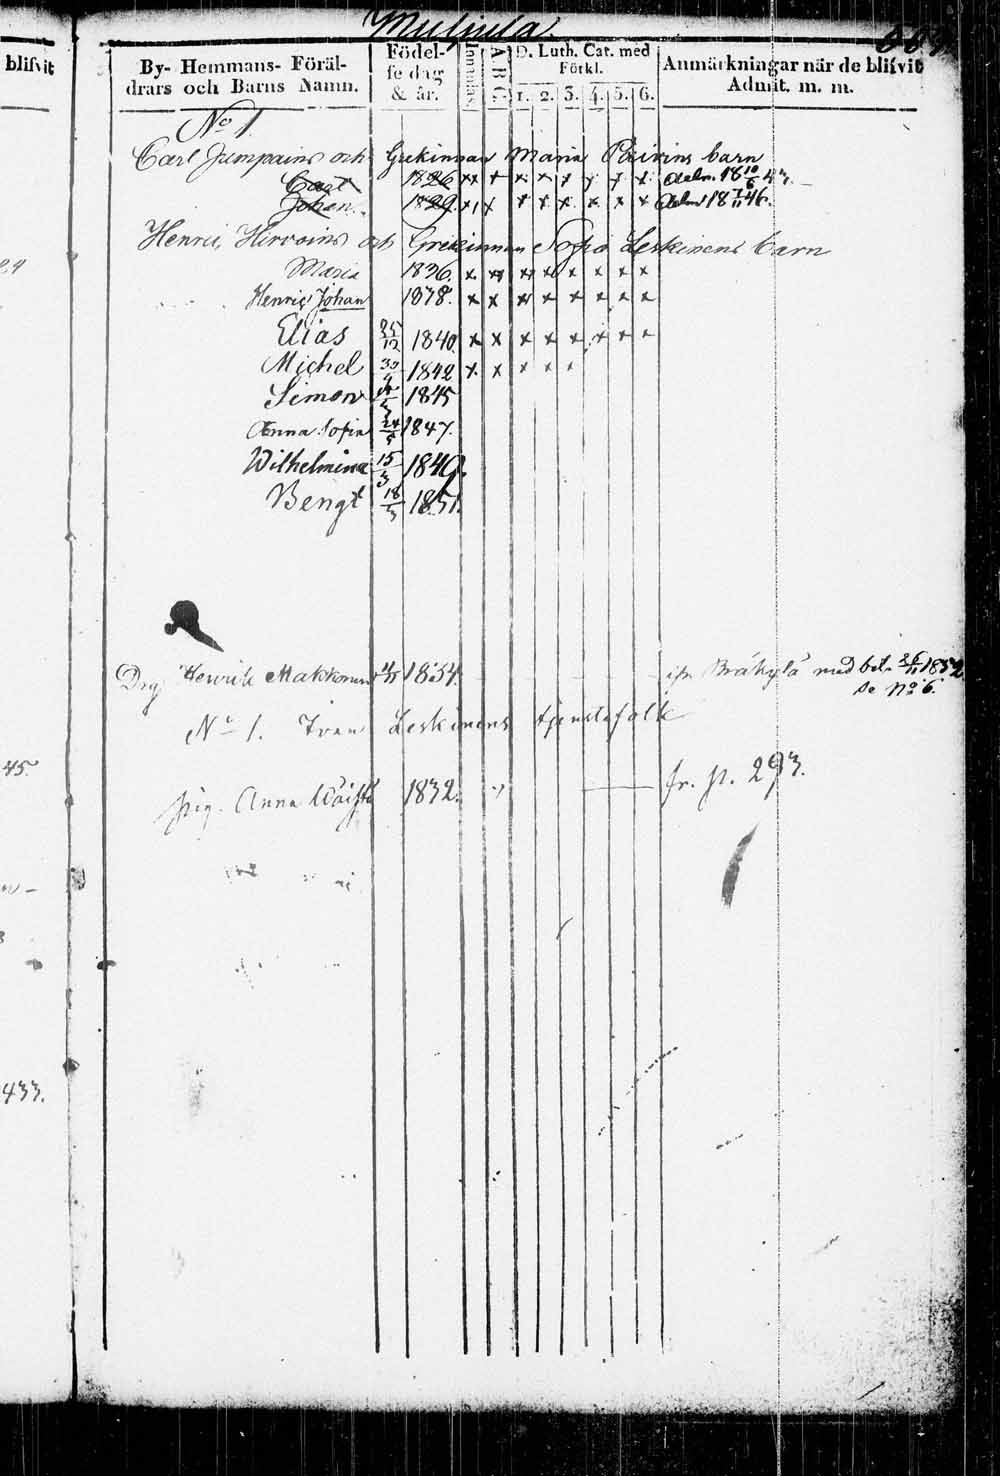 blifvit
By- Hemmans- Föräl-
drars och Barns Namn.
Födel-
se dag
& år.
Innanläs
A B C
D. Luth. Cat. med
Förkl.
1. 2. 3. 4. 5. 6.
Anmärkningar när de blifvit
Admit. m. m.
No 1
Carl Jumpains och Grekinnan Maria Päivins barn
Carl 1826 x x x x x x x x x Adm. 18 10/6 43.
Johan 1829. x x x x x x x x Adm 18 7/11 46.
Henric Hirvoins och Grekinnan Sofia Leskinens barn
Maria 1836. x x x x x x x x
Henric Johan 1838. x x x x x x x x
Elias 25/12 1840. x x x x x x x x
Michel 30/9 1842 x x x x x
Simon 1845
Anna Sofia 24/5 1847.
Wilhelmina 15/3 1849.
Bengt 18/3 1851.
Drg Henrik Makkonen 4/11 1834. ifr. Bräkylä med bet. 26/11 1852
se No 6.
No 1. Ivan Leskinens tjenstefolk
45.
pig. Anna 1832. " — fr. p. 293.
433.